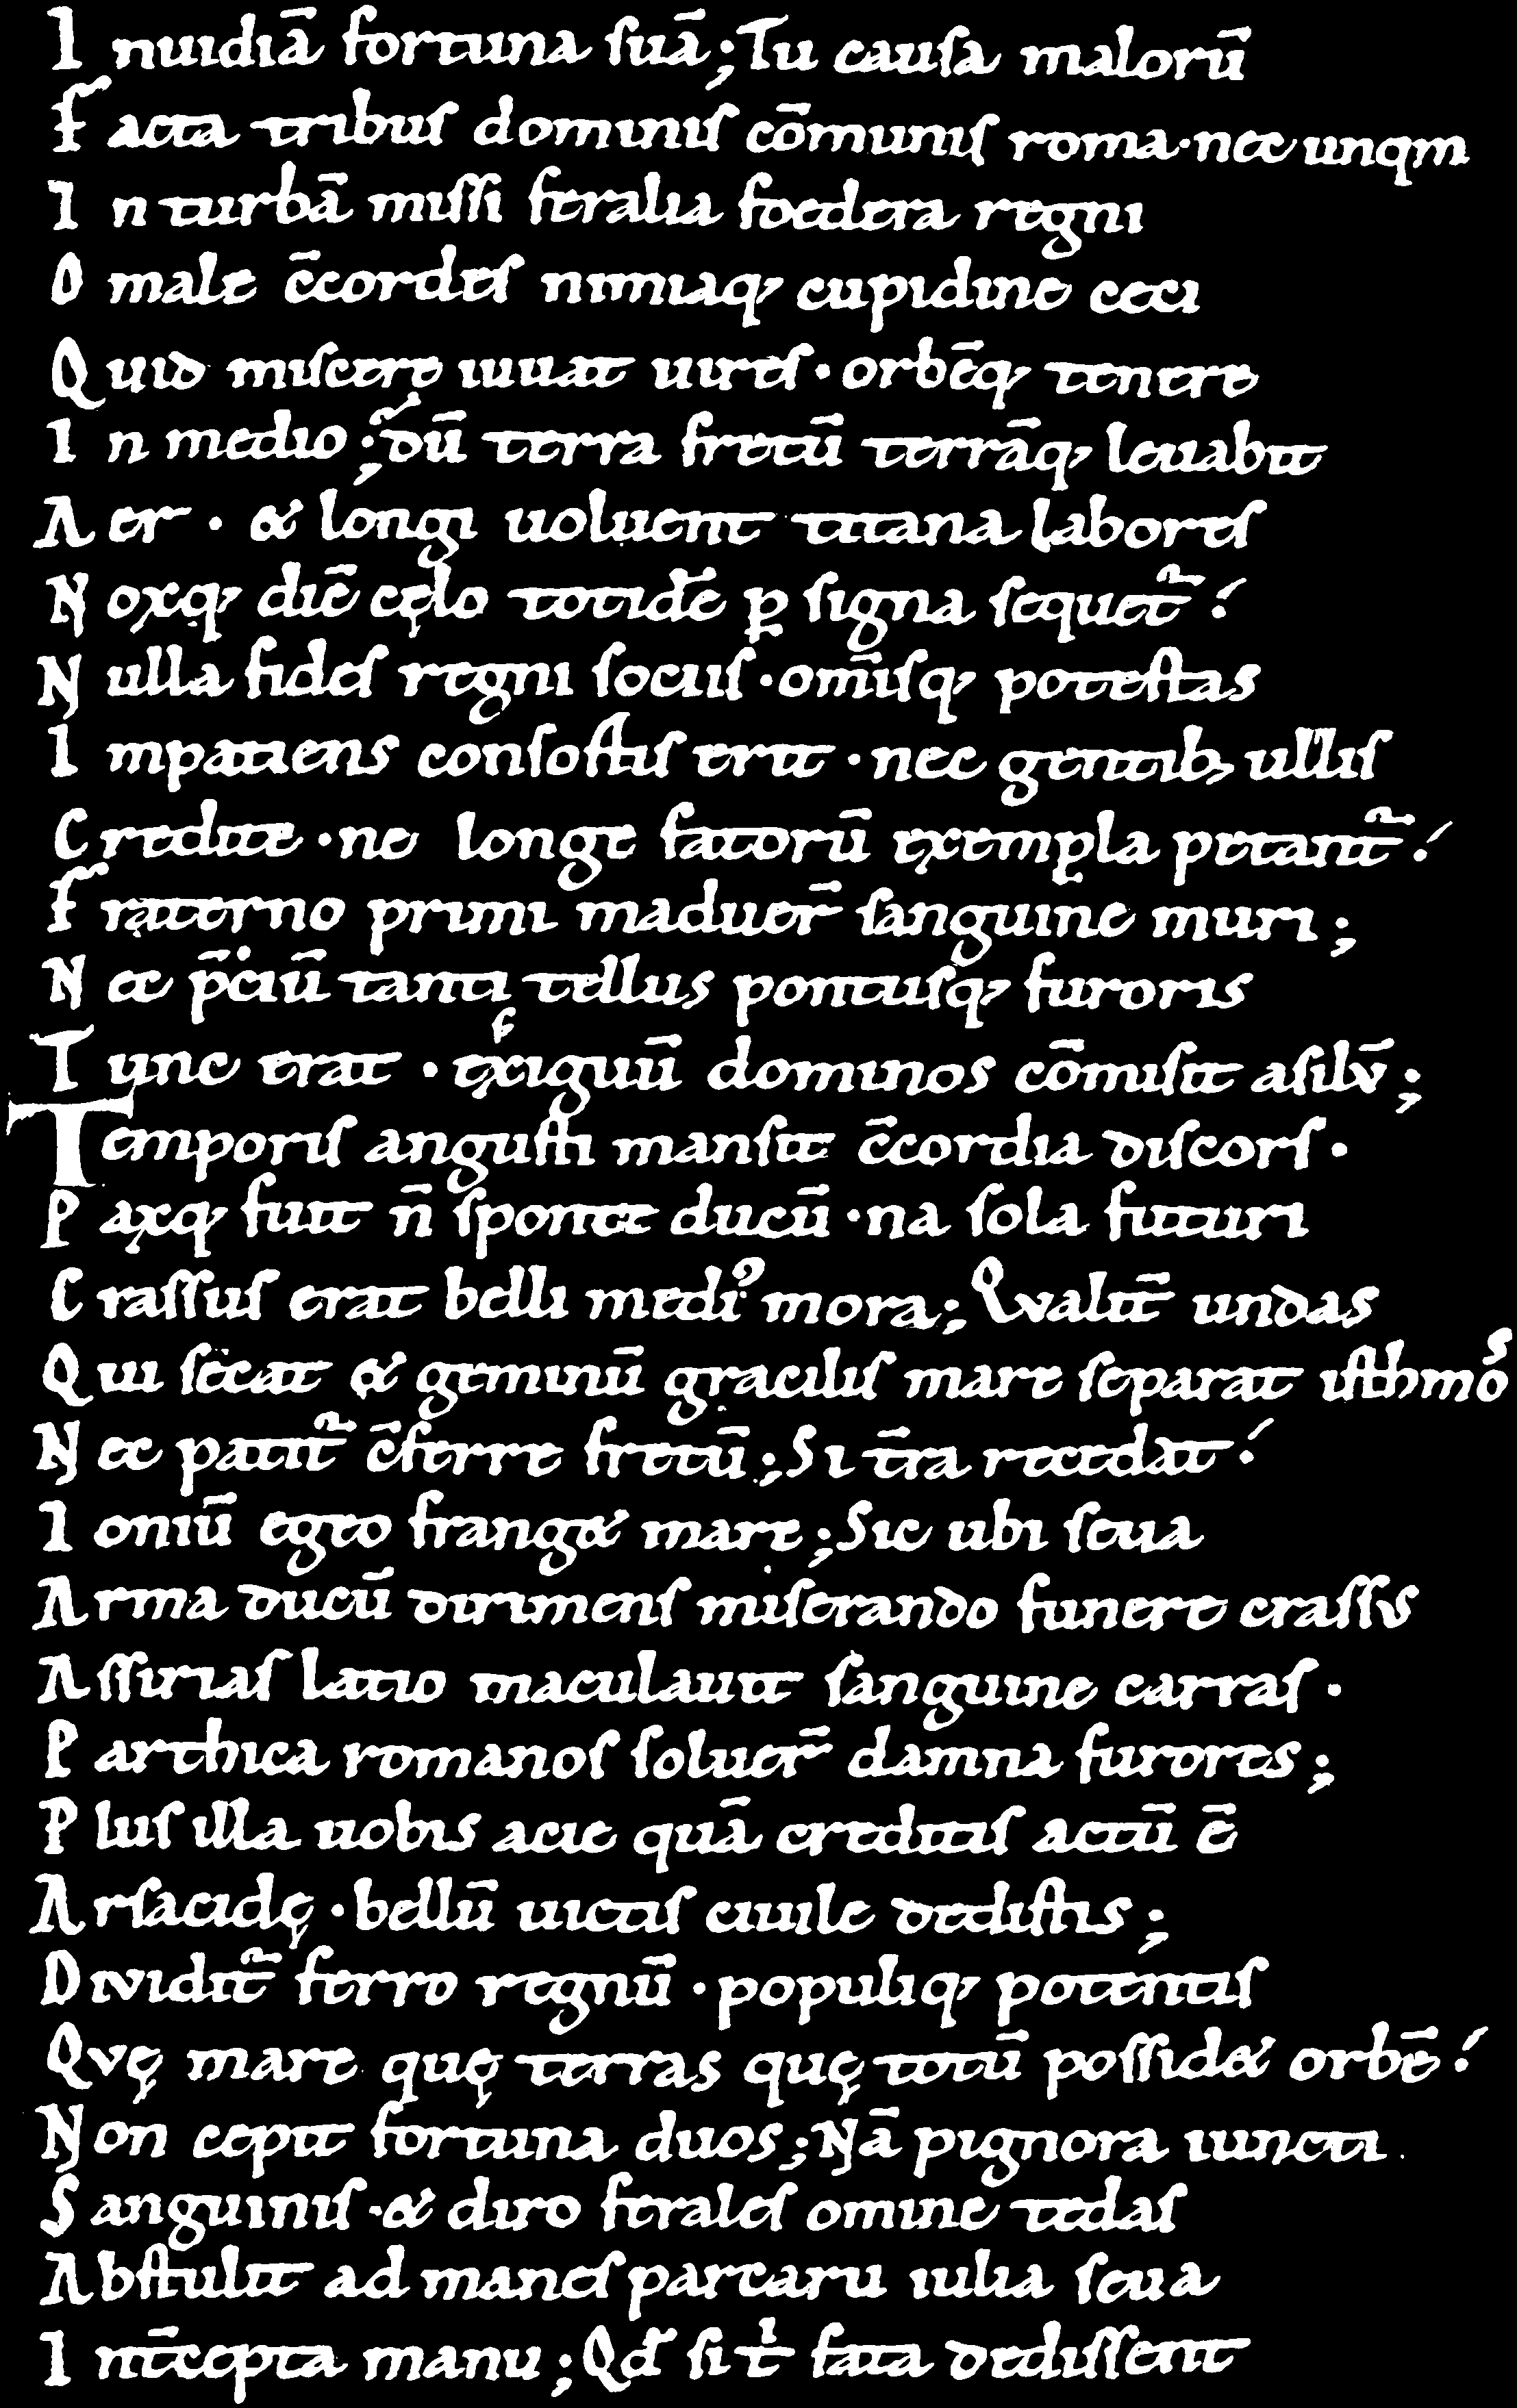 I nuidiā fortuna ſuā; Tu cauſa malorū
F acta tribuſ dominiſ cōmuniſ roma · nec unqm
I n turbā miſſi feralia foedera regni
O male c̄cordeſ nimiaq; cupidine ceci
Q uid miſcere iuuat uireſ · orbēq; tenere
I n medio; dū terra fretū terrāq; leuabit
A er · & longi uoluent titana laboreſ
N oxq; diē cęlo totidē ꝑ ſigna ſequet᷑!
N ulla fideſ regni ſociiſ · om̄iſq; poteſtas
I mpatiens conſortiſ erit · nec gentib; ulliſ
C redite · ne longe fatorū exempla petant᷑!
F raterno primi maduer̄ ſanguine muri;
N ec p̄ciū tanti tellus pontuſq; furoris
T unc erat · exiguū dominos cōmiſit aſilv̄;
T emporiſ anguſti manſit c̄cordia diſcorſ ·
P axq; fuit n̄ ſponte ducū · na ſola futuri
C raſſuſ erat belli mediꝰ mora; Qvalit̄ undas
Q ui ſecat & geminū graciliſ mare ſeparat iſthmoſ
N ec patit᷑ c̄ferre fretū; Si t̄ra recedat!
I oniū egeo frang& mare; Sic ubi ſeua
A rma ducū dirimenſ miſerando funere craſſvs
A ſſiriaſ latio maculauit ſanguine carraſ ·
P arthica romanoſ ſoluer̄ damna furores;
P luſ illa uobis acie quā creditiſ actū ē
A rſacidę · bellū uictiſ ciuile dediſtis;
D ividit᷑ ferro regnū · populiq; potentiſ
Q vę mare quę terras quę totū poſſid& orbē!
N on cepit fortuna duos; Nā pignora iuncti
S anguiniſ · & diro feraleſ omine tedaſ
A bſtulit ad maneſ parcaru iulia ſeua
I nt̄cepta manu; Qđ ſi t̓ fata dediſſent